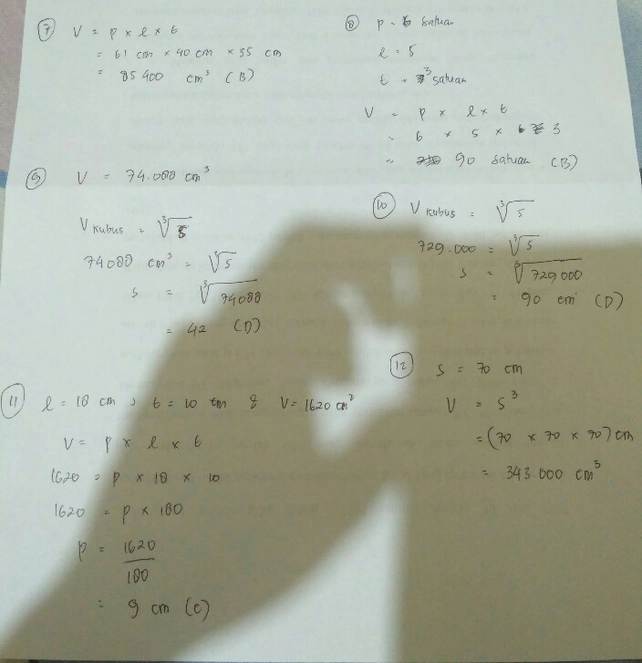 7 V = p x l x t
= 61 cm x 40 cm x 35 cm
= 85400 cm³ (B)
8 p = 6 satuan
l = 5
t = 3 satuan
V = p x l x t
= 6 x 5 x 3
= 90 satuan (B)
9 V = 74.088 cm³
V kubus = ³√s
74088 cm³ = ³√s
s = ³√74088
= 42 (D)
10 V kubus = ³√s
729.000 = ³√s
s = ³√729000
= 90 cm (D)
11 l = 18 cm, t = 10 cm & V = 1620 cm³
V = p x l x t
1620 = p x 18 x 10
1620 = p x 180
p = 1620
180
= 9 cm (C)
12 s = 70 cm
V = s³
= (70 x 70 x 70) cm
= 343.000 cm³